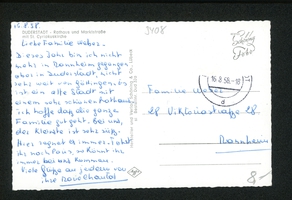 16.8.58.
DUDERSTADT - Rathaus und Marktstraße
mit St. Cyriakuskirche
Liebe Familie Weber.
Dieses Jahr bin ich nicht
wohl in Mannheim gegangen
aber in Duderstadt, nicht
sehr weit von Göttingen. Es
ist ein alte Stadt mit
einem sehr schönen Rathaus.
Ich hoffe das die ganze
Familie gut geht. Bei uns,
der Kleinste ist sehr süß.
Hier regnet es immer. Fahrt
ihr nach Paris, so könnt ihr
immer bei uns kommen.
Viele Grüße an jedem von
ihre
3408
Echte
Foto
16.8.58.-18
Familie Weber
28
Mannheim
8